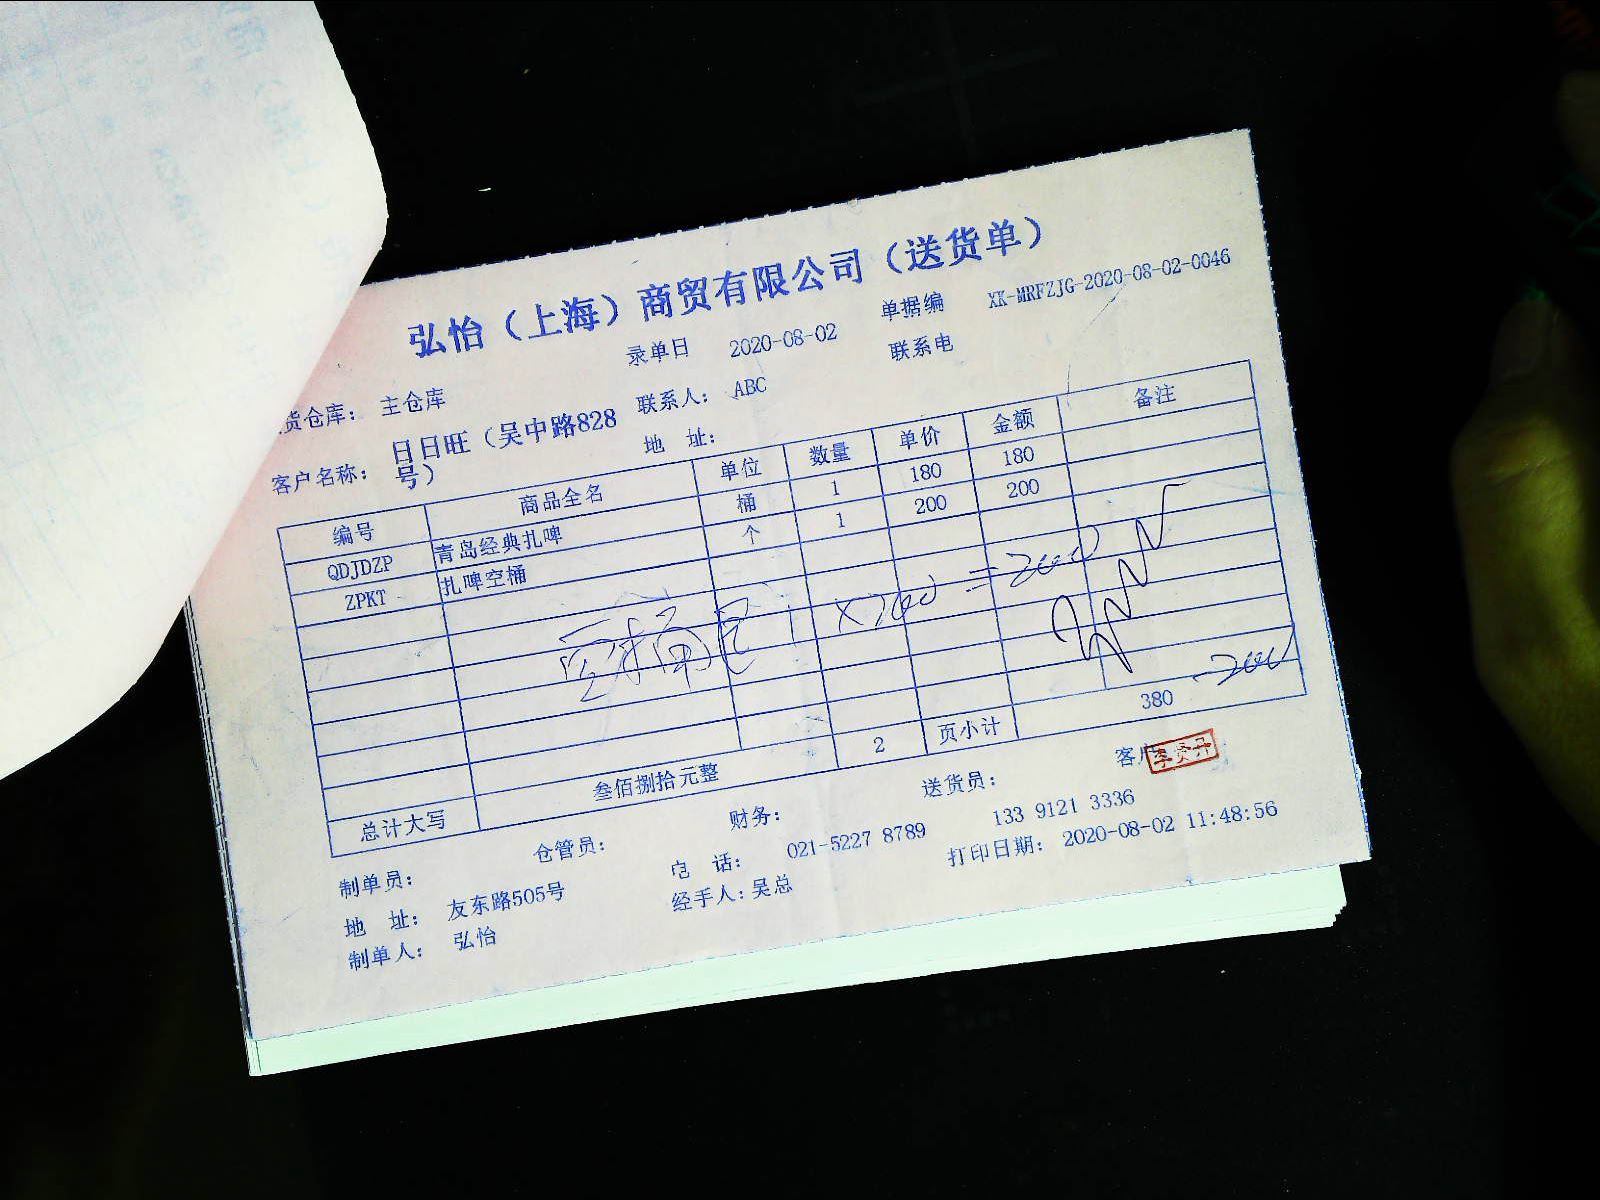 弘怡（上海）商贸有限公司（送货单）
录单日 2020-08-02 单据编 XK-MRFZJG-2020-08-02-0046
货仓库： 主仓库 联系人： ABC 联系电
客户名称： 日日旺（吴中路828号） 地 址：
编号 商品全名 单位 数量 单价 金额 备注
QDJDZP 青岛经典扎啤 桶 1 180 180
ZPKT 扎啤空桶 个 1 200 200
空桶 1 X200 = 200
-200
总计大写 叁佰捌拾元整 2 页小计 380
制单员： 仓管员： 财务： 送货员： 客户
地 址： 友东路505号 电 话： 021-5227 8789 133 9121 3336
制单人： 弘怡 经手人：吴总 打印日期： 2020-08-02 11:48:56